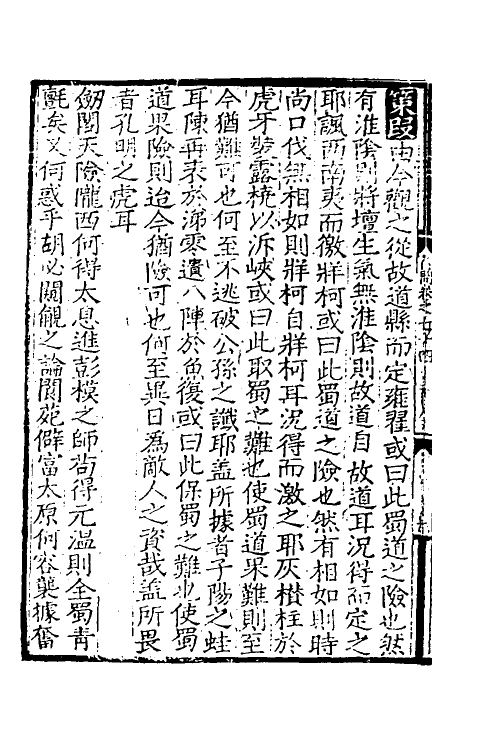 策段由今觀之從故道縣而定雍翟或曰此蜀道之險也然
有淮陰則將壇生氣無淮陰則故道自故道耳況得而定之
耶諷西南夷而徼牂柯或曰此蜀道之險也然有相如則時
尚口伐無相如則牂柯自牂柯耳況得而激之耶灰橫柱於
虎牙裝露橈以泝峽或曰此取蜀之難也使蜀道果難則至
今猶難可也何至不逃破公孫之讖耶盖所據者子陽之蛙
耳陳再表於涕零遺八陣於魚復或曰此保蜀之難也使蜀
道果險則迨今猶險可也何至異日為敵人之資哉盖所畏
者孔明之虎耳
劒閣天險隴西何得太息進彭模之師苟得元溫則全蜀青
氈矣又何惑乎胡必關覦之論閬苑僻富太原何容襲據奮